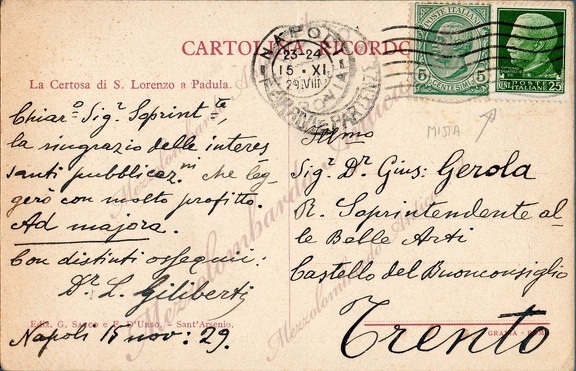 CARTOLINA RICORDO
NAPOLI
23-24
15 · XI
29.VIII
POSTE ITALIANE
5 CENTESIMI 5
POSTE
ITALIANE
CENT. 25
MISTA
La Certosa di S. Lorenzo a Padula.
Chiar.o Sig.r Soprint.te,
la ringrazio delle interes
santi pubblicaz.ni che leg-
gerò con molto profitto.
Ad majora.
Con distinti ossequii:
Dr. L. Giliberti
Ediz. G. Sacco e E. D'Urso. - Sant'Arsenio.
Napoli 15 nov: 29.
Ill̃mo
Sig.r Dr. Gius: Gerola
R. Soprintendente al-
le Belle Arti
Castello del Buonconsiglio
Trento
Mezzolombardo
Mezzolombardo